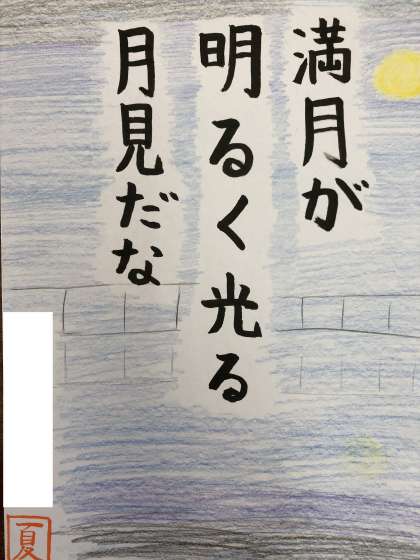 満月が
明るく光る
月見だな
夏